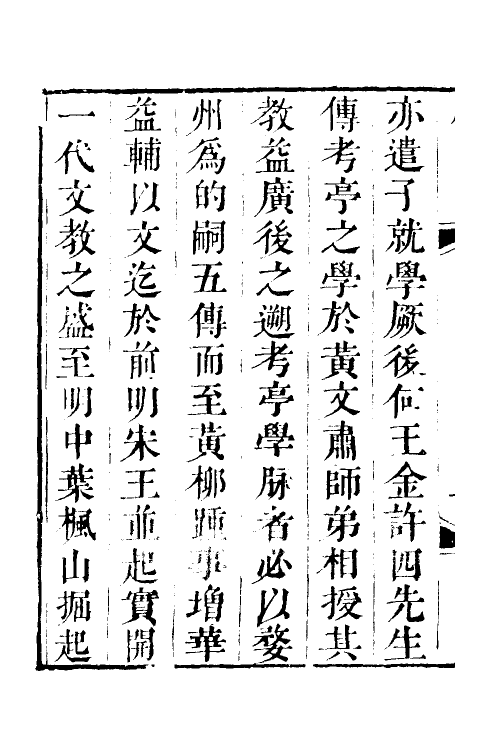 亦遣子就學厥後何王金許四先生
傳考亭之學於黃文肅師弟相授其
教益廣後之遡考亭學脉者必以婺
州爲的嗣五傳而至黃柳踵事增華
益輔以文迄於前明宋王並起實開
一代文教之盛至明中葉楓山掘起